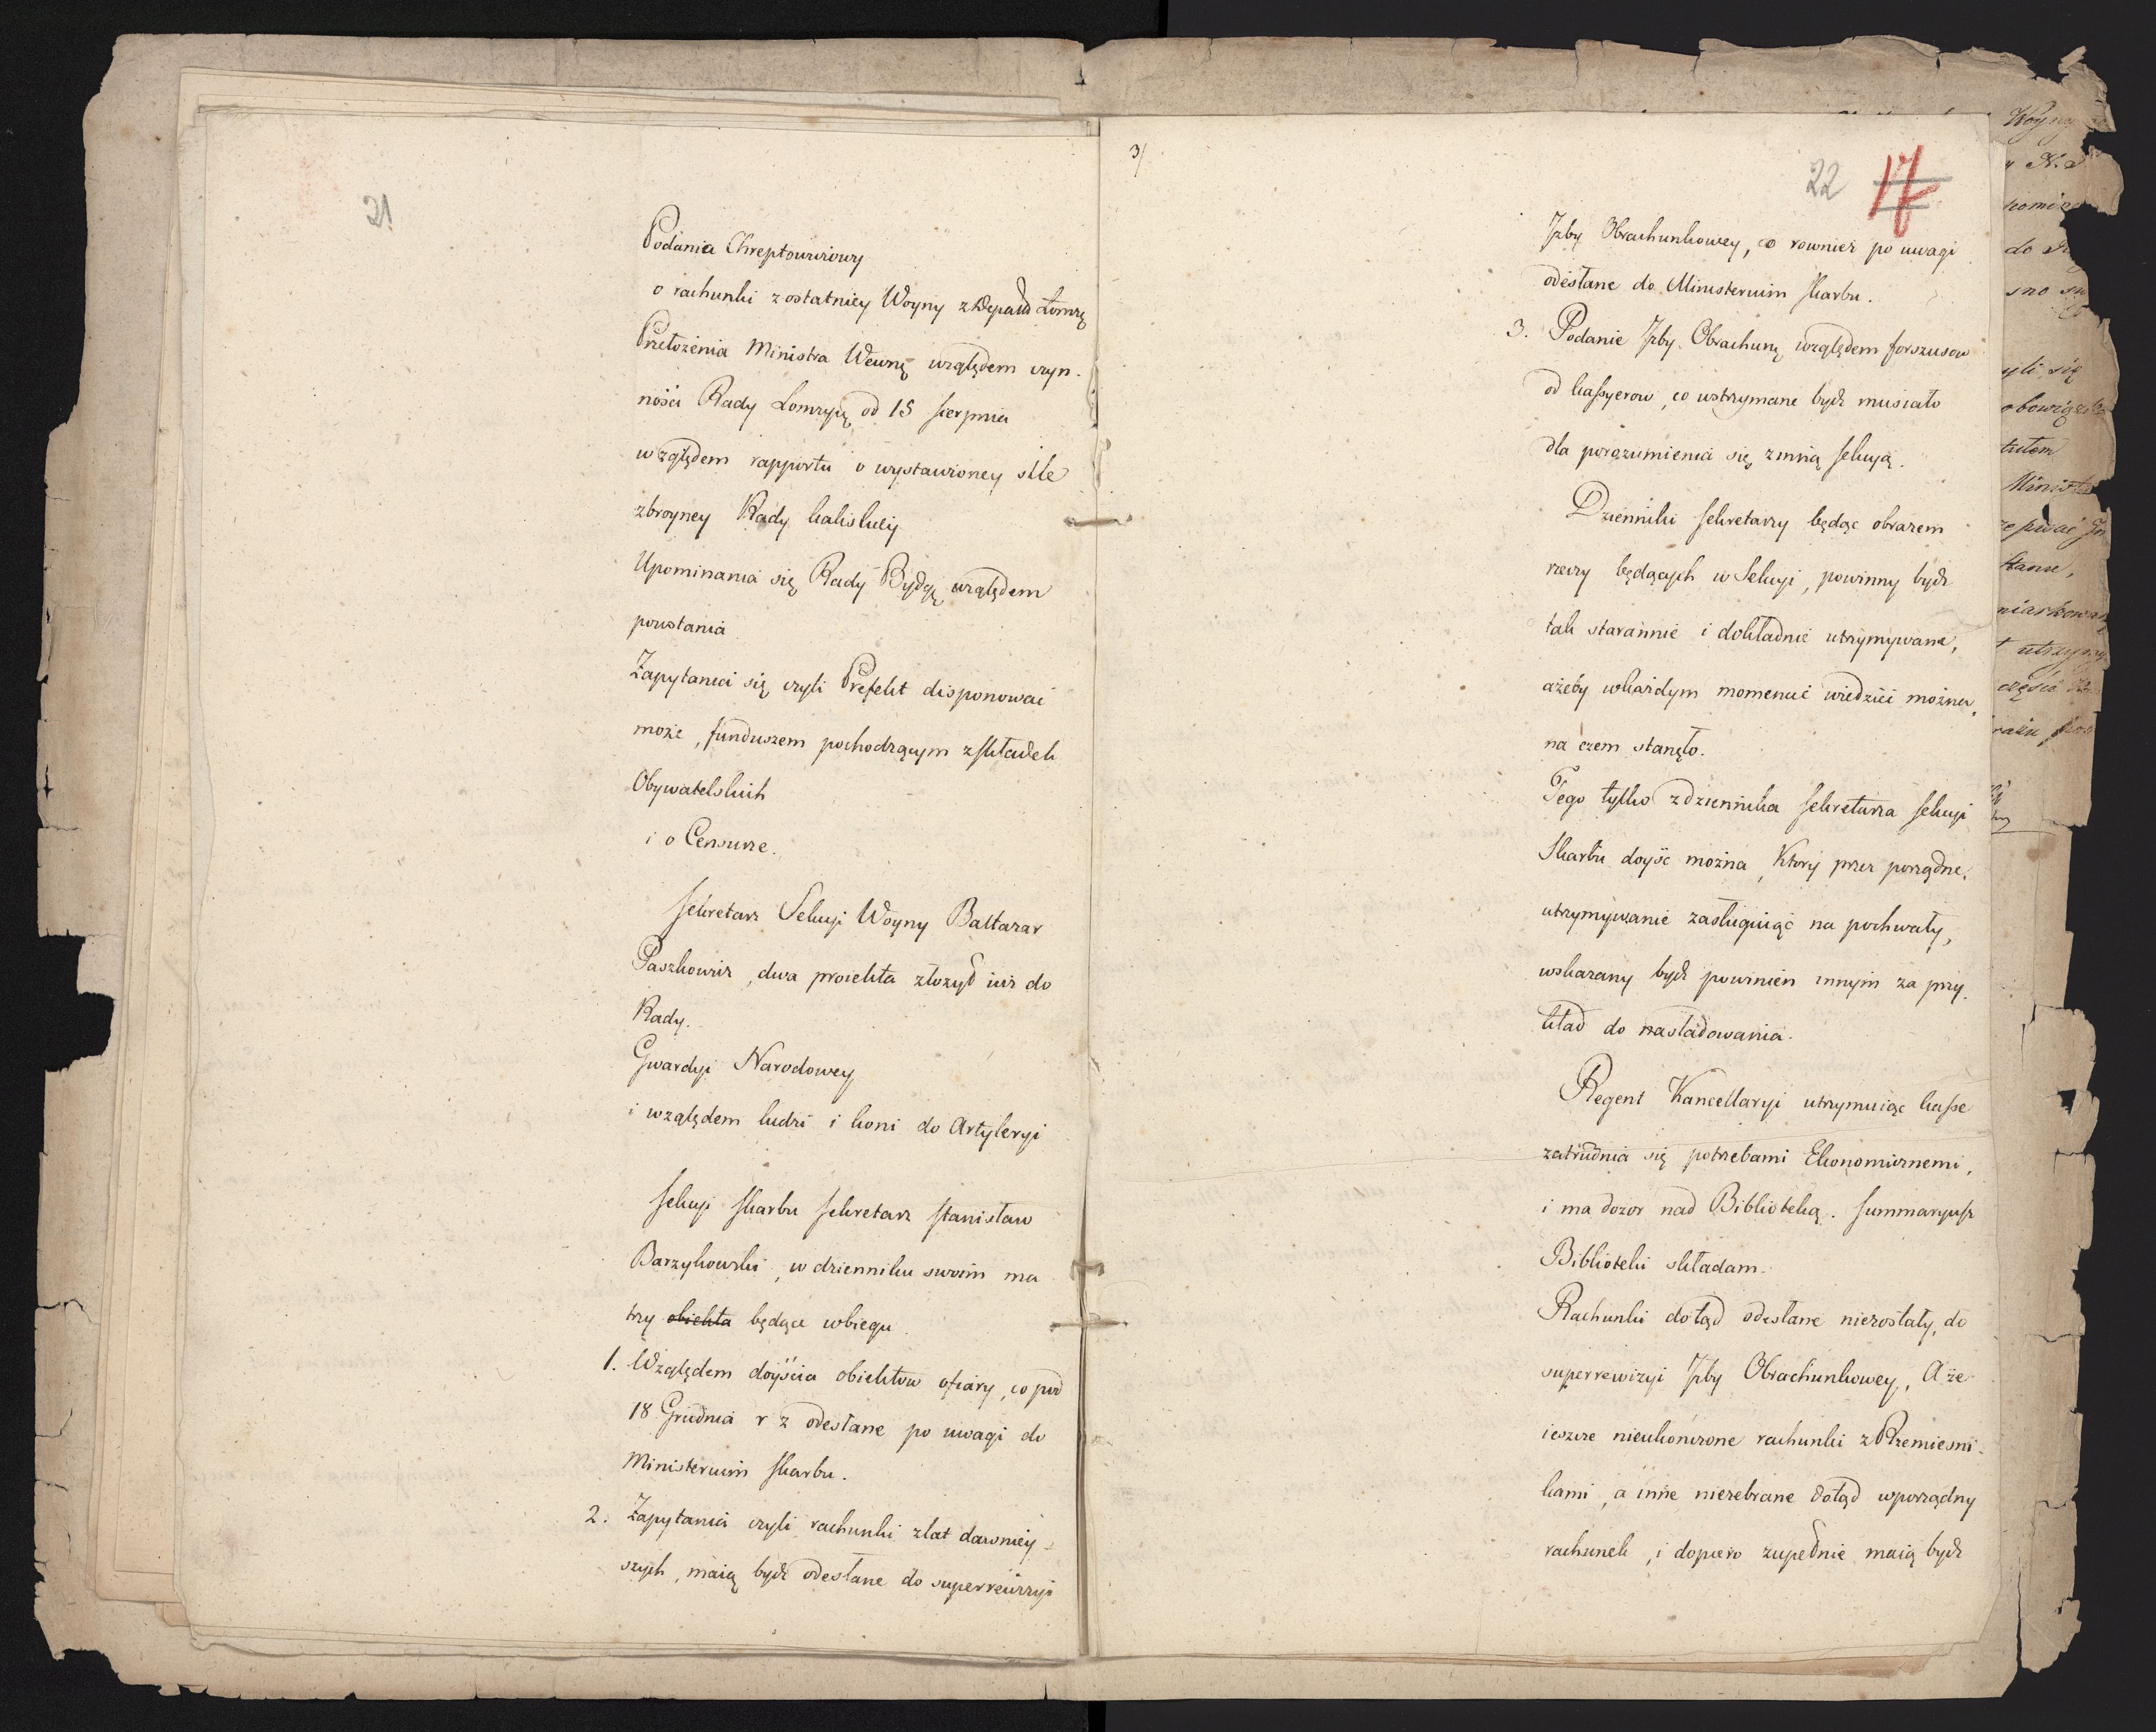 21
Podania Chreptowiczowy
o rachunki z ostatniey Woyny z Depard Łomżę
Przełożenia Ministra Wewnę względem czyn-
ności Rady Łomżyię od 15 sierpnia
względem rapportu o wystawioney sile
zbroyney Rady kaliskiey
Upominania się Rady Bydgę względem
powstania
Zapytania się czyli Prefekt disponować
może, funduszem pochodzącym z składek
Obywatelskich
i o Censurze.
sekretarz Sekcyi Woyny Baltazar
Paszkowicz, dwa proiekta złożył iuż do
Rady.
Gwardyi Narodowey
i względem ludzi i koni do Artyleryi
sekcyi skarbu sekretarz stanisław
Barzykowski, w dzienniku swoim ma
trzy obiekta będące w biegu.
1. Względem doyścia obiektow ofiary, co pod
18 Grudnia r z odesłane po uwagi do
Ministerium skarbu.
2. Zapytania czyli rachunki z lat dawniey-
szych, maią bydź odesłane do superrewizyi
3/
22 17
Izby Obrachunkowey, co rownież po uwagi
odesłane do Ministerium skarbu.
3. Podanie Izby Obrachunę względem forszusow
od kassyerow, co wstrzymane bydź musiało
dla porozumienia się z inną sekcyą.
Dzienniki sekretarzy będąc obrazem
rzeczy będących w Sekcyi, powinny bydź
tak starannie i dokładnie utrzymywane,
ażeby w każdym momencie wiedzieć można,
na czem stanęło.
Tego tylko z dziennika sekretarza sekcyi
Skarbu doyść można, Ktory przez porządne,
utrzymywanie zasługuiąc na pochwały,
wskazany bydź powinien innym za przy-
kład do nasladowania.
Regent Kancellaryi utrzymuiąc kasse
zatrudnia się potrzebami Ekonomicznemi,
i ma dozor nad Biblioteką. summaryusz
Biblioteki składam.
Rachunki dotąd odesłane niezostały, do
superrewizyi Izby Obrachunkowey, A że
ieszcze nieukończone rachunki z Rzemiesni-
kami, a inne niezebrane dotąd w porządny
rachunek, i dopiero zupełnie maią bydź